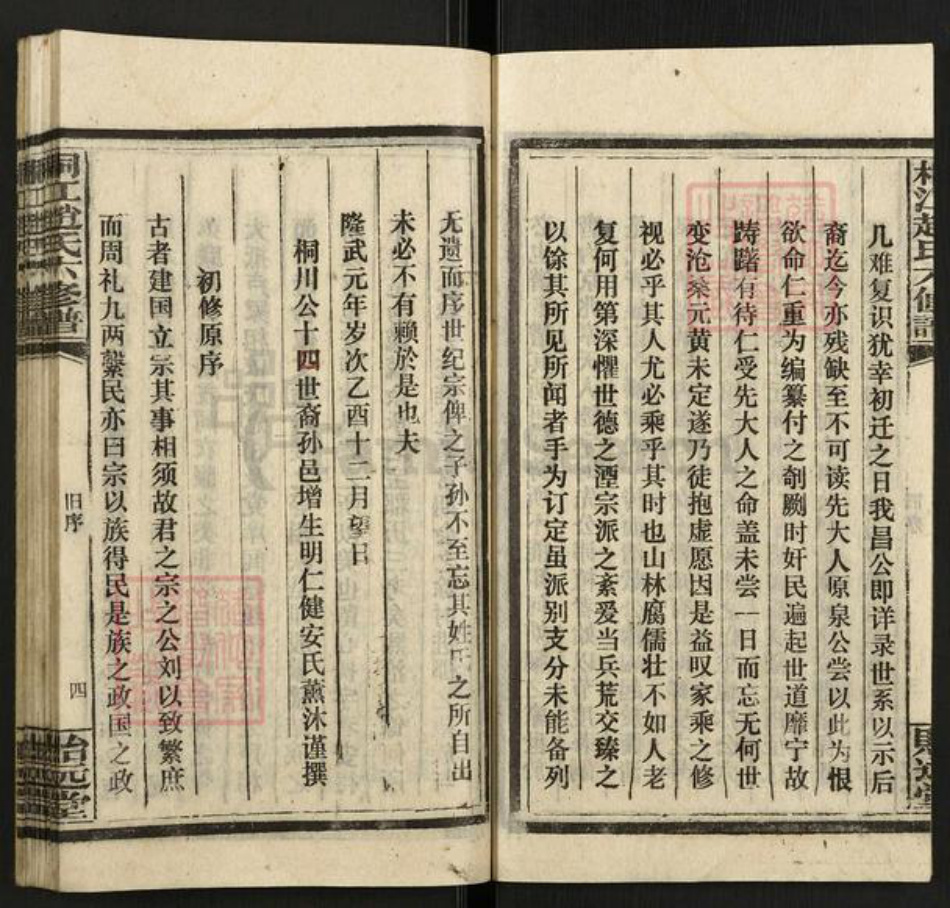 几难复识犹幸初迁之日我昌公即详录世系以示后
裔迄今亦残缺至不可读先大人原泉公尝以此为恨
欲命仁重为编纂付之剞劂时奸民遍起世道靡宁故
踌躇有待仁受先大人之命盖未尝一日而忘无何世
变沧桑元黄未定遂乃徒抱虚愿因是益叹家乘之修
视必乎其人尤必乘乎其时也山林腐儒壮不如人老
复何用第深惧世德之湮宗派之紊爰当兵荒交臻之
以馀其所见所闻者手为订定虽派别支分未能备列
无遗而序世纪宗俾之子孙不至忘其姓氏之所自出
未必不有赖於是也夫
隆武元年岁次乙酉十二月望日
桐川公十四世裔孙邑增生明仁健安氏薰沐谨撰
初修原序
古者建国立宗其事相须故君之宗之公刘以致繁庶
而周礼九两繫民亦曰宗以族得民是族之政国之政
桐江趙氏六修譜
旧序
四
贻远堂